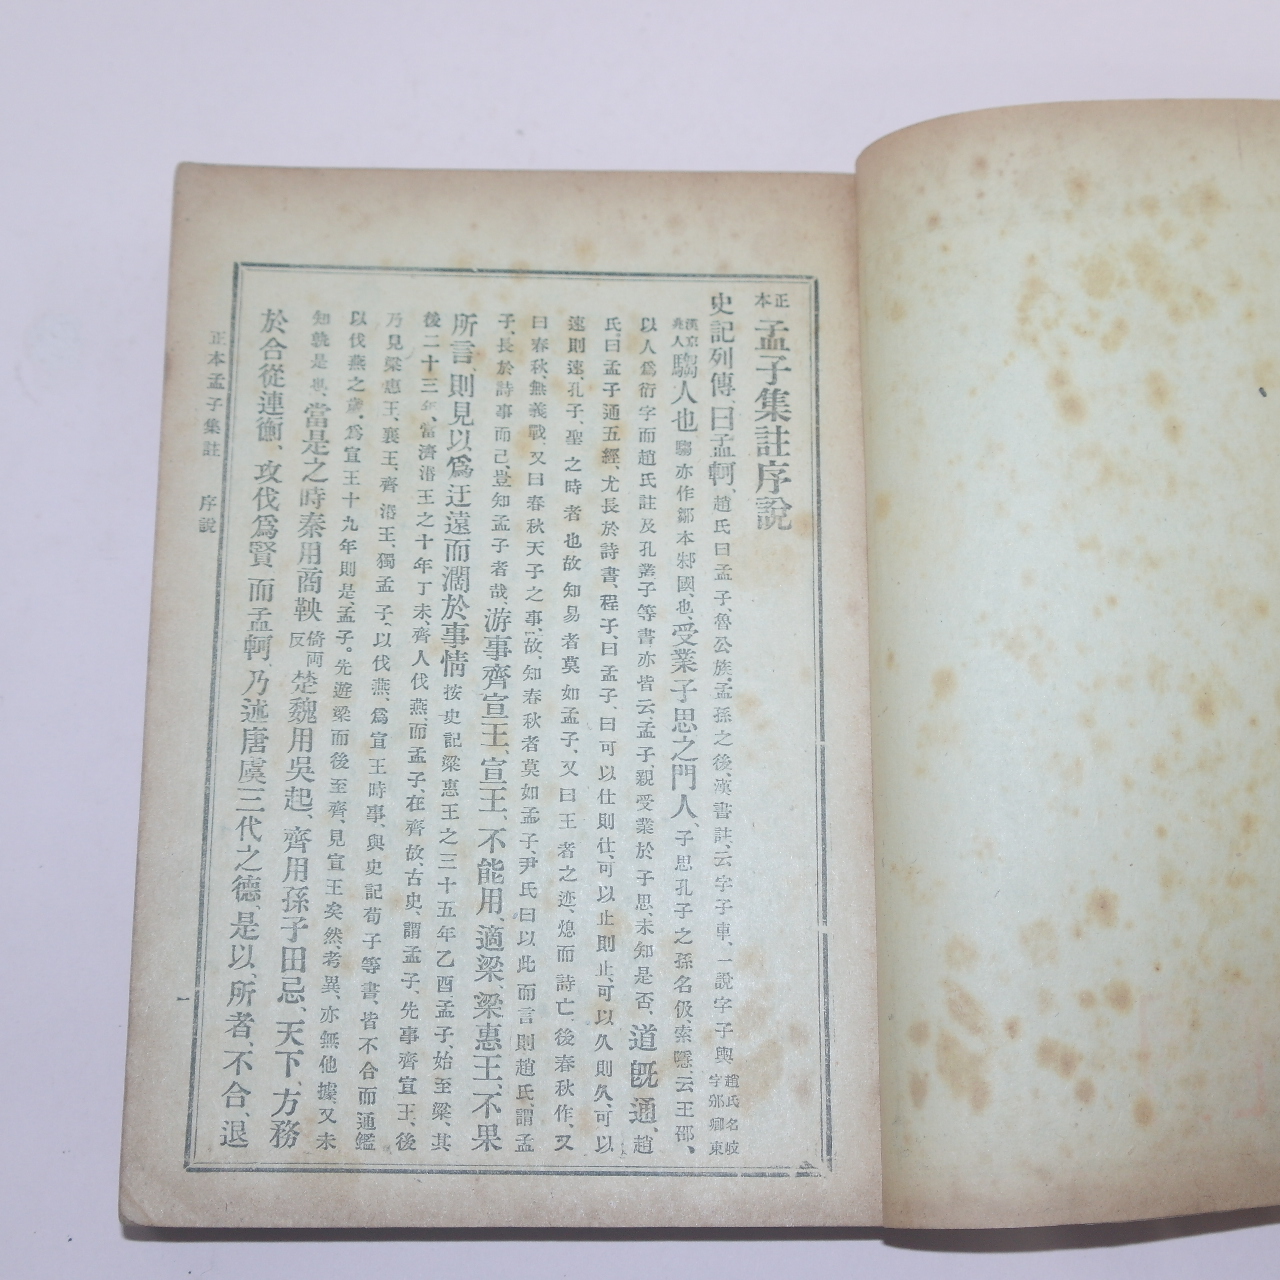 正本 孟子集註序說
史記列傳、曰孟軻、趙氏曰孟子、魯公族、孟孫之後、漢書註、云字子車、一說字子輿 趙氏名岐字邠卿東
漢京兆人 騶人也 騶亦作鄒本邾國也、受業子思之門人、子思孔子之孫名伋、索隱、云王邵、
以人爲衍字而趙氏註及孔叢子等書亦皆云、孟子、親受業於子思、未知是否、道旣通、趙
氏、曰孟子通五經、尤長於詩書、程子、曰孟子、曰可以仕則仕、可以止則止、可以久則久、可以
速則速、孔子、聖之時者也故知易者莫如孟子、又曰王者之迹、熄而詩亡、後春秋作、又
曰春秋、無義戰、又曰春秋天子之事、故、知春秋者莫如孟子、尹氏曰以此而言則趙氏、謂孟
子、長於詩事而已、豈知孟子者哉、游事齊宣王、宣王、不能用、適梁、梁惠王、不果
所言、則見以爲迂遠而濶於事情 按史記梁惠王之三十五年乙酉、孟子、始至梁、其
後二十三年、當濟湣王之十年丁未、齊人伐燕、而孟子、在齊故、古史、謂孟子、先事齊宣王、後
乃見梁惠王、襄王、齊湣王、獨孟子、以伐燕、爲宣王時事、與史記荀子等書、皆不合而通鑑
以伐燕之歲、爲宣王十九年則是、孟子。先遊梁而後至齊、見宣王矣然、考異、亦無他據、又未
知孰是也、當是之時秦用商鞅 倚兩反 楚魏用吳起、齊用孫子田忌、天下、方務
於合從連衡、攻伐爲賢、而孟軻、乃述唐虞三代之德、是以、所者、不合、退
正本孟子集註 序說
一